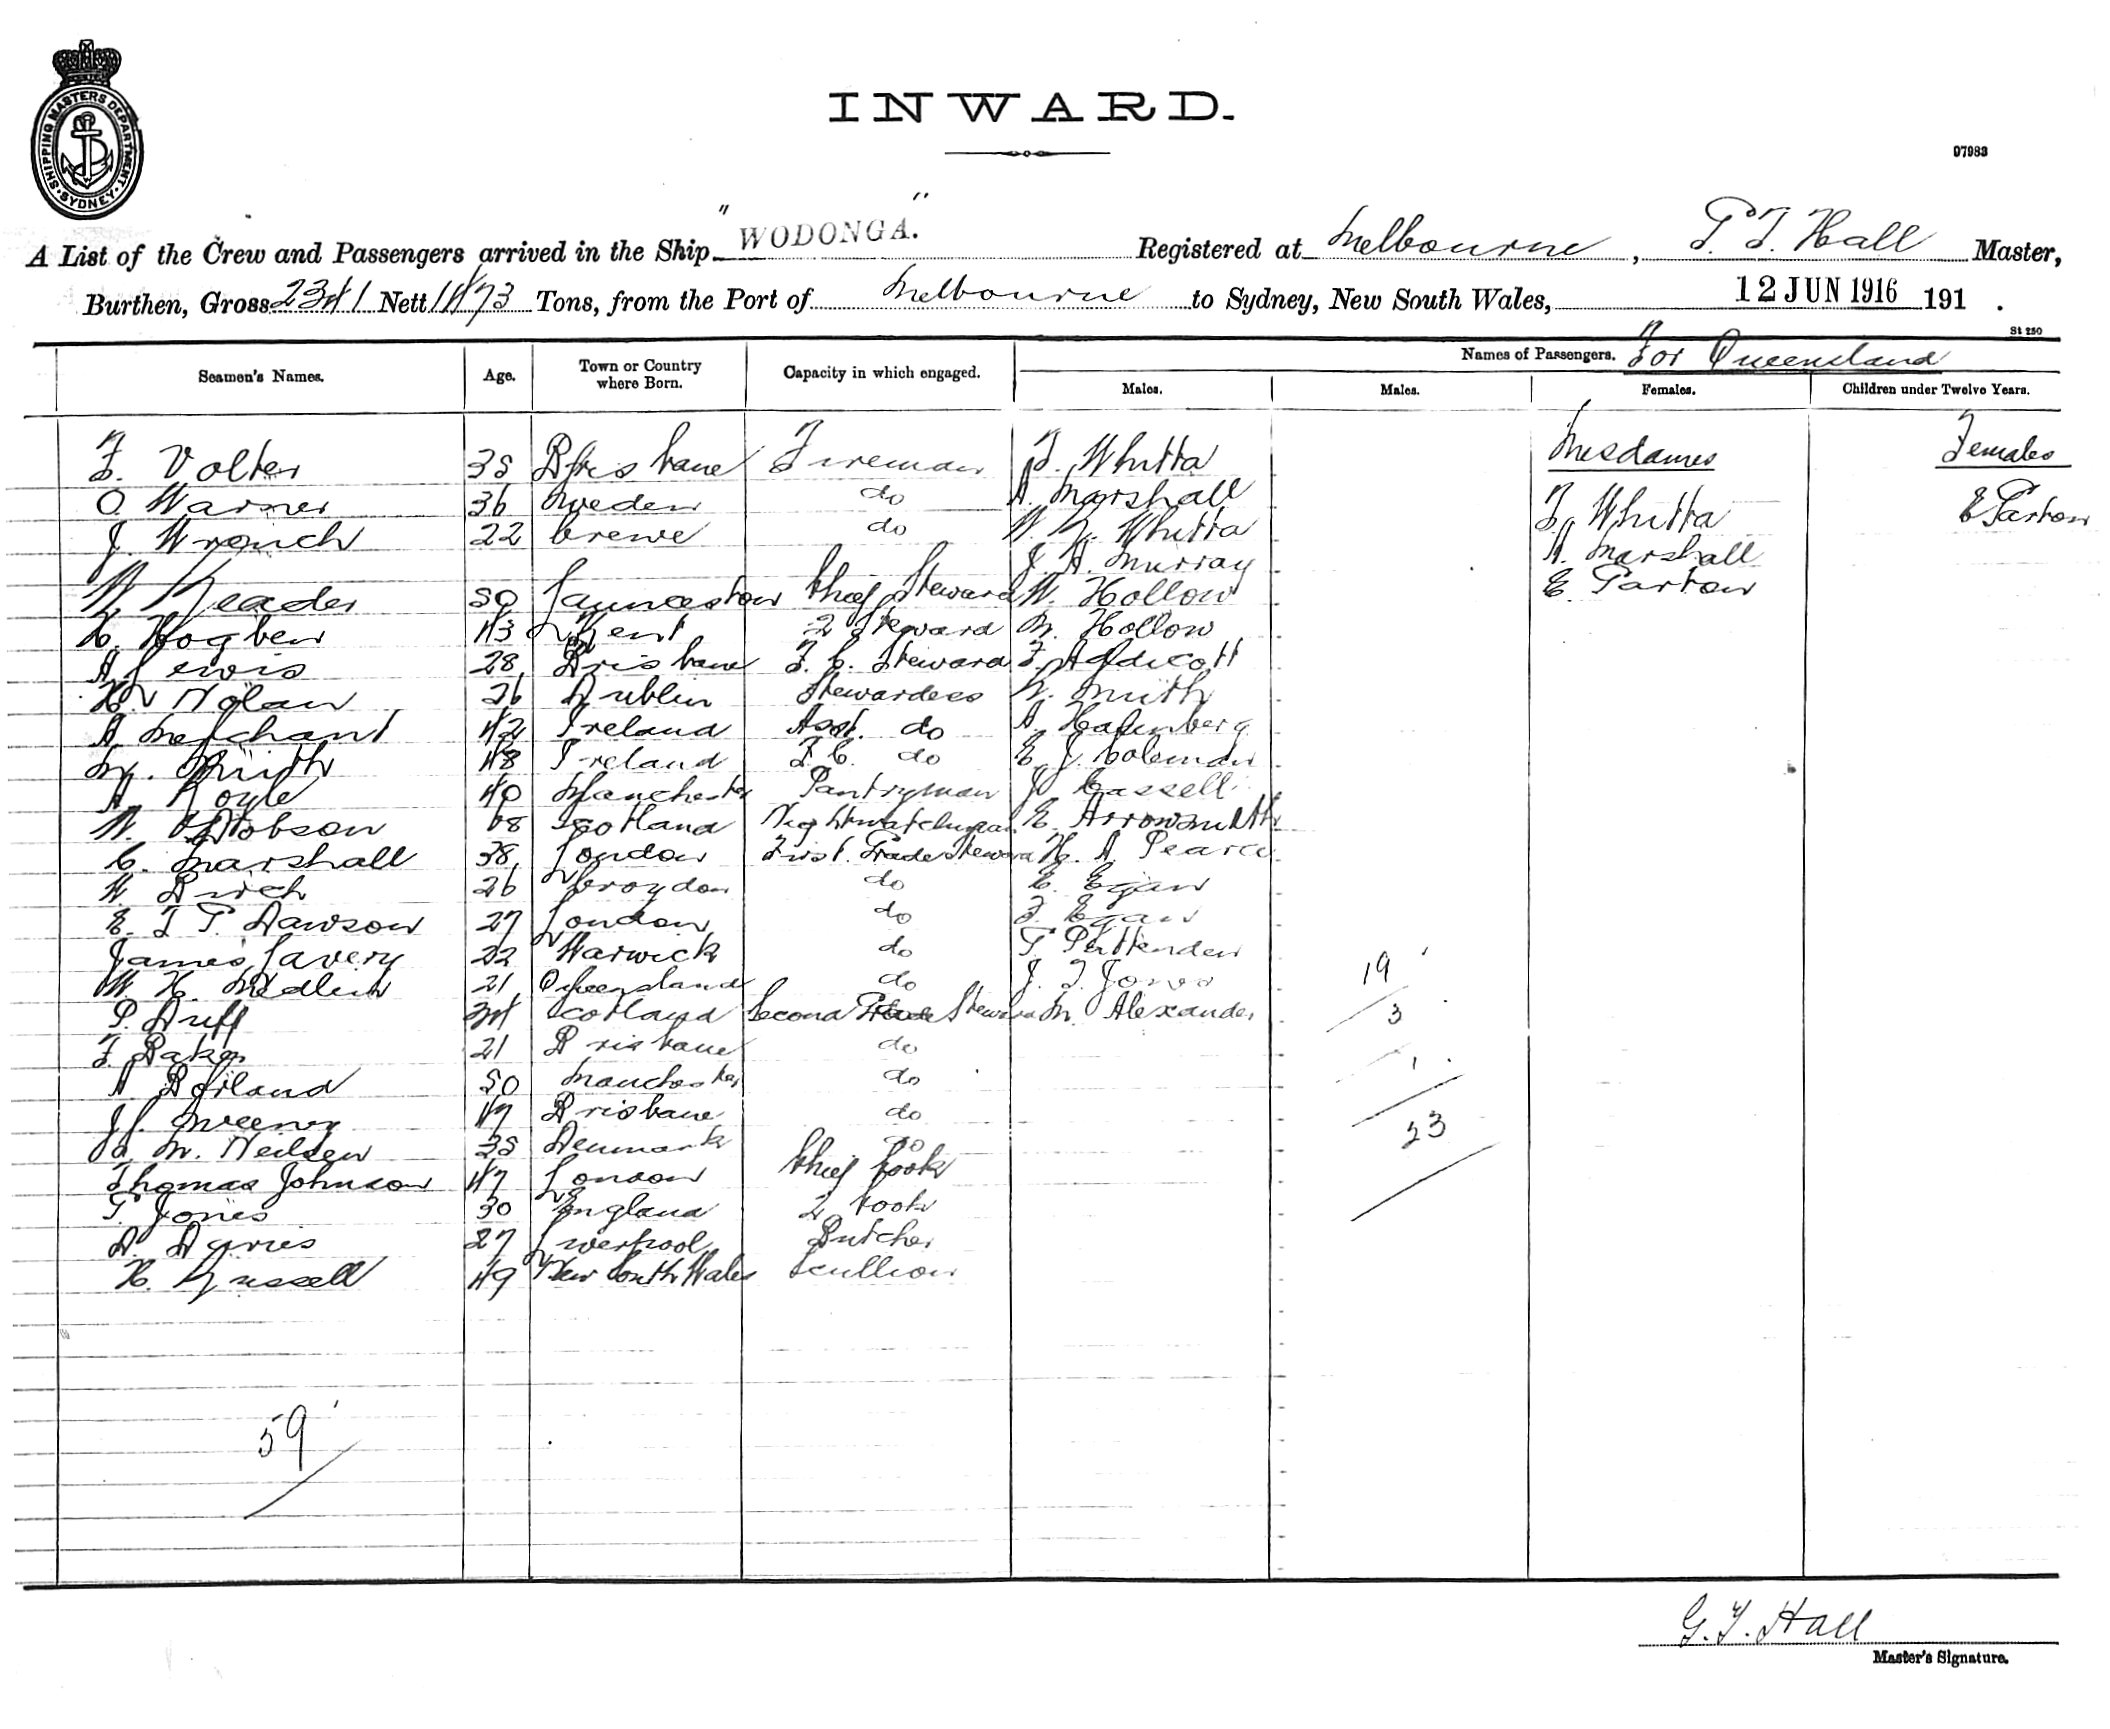 SHIPPING MASTERS DEPARTMENT
SYDNEY
INWARD.
97983
A List of the Crew and Passengers arrived in the Ship "WODONGA." Registered at Melbourne, Master,
Burthen, Gross 2341 Nett 1473 Tons, from the Port of Melbourne to Sydney, New South Wales, 12 JUN 1916 191 .
St 250
Seamen's Names. Age. Town or Country where Born. Capacity in which engaged. Names of Passengers. For Queensland
Males. Males. Females. Children under Twelve Years.
F. Volter 35 Brisbane Fireman F. Whitta Mesdames Females
O. Warner 36 Sweden do A. Marshall F. Whitta E Parton
J. Wrench 22 Crewe do W. Whitta A. Marshall
J. A. Murray E. Parton
W. Reader 50 Launceston Chief Steward W. Hollow
Hogben 43 Kent 2 Steward M. Hollow
A Lewis 28 Brisbane F. C. Steward F. Addicott
Nolan 26 Dublin Stewardess Smith
A. Merchant 42 Ireland Asst. do A.
M. Smith 48 Ireland F. C. do E. J. Coleman
A. Royle 40 Manchester Pantryman J. Cassell
W. Dobson Scotland Nightwatchman E. Arrowsmith
C. Marshall 38 London First Grade Steward H. A. Pearce
W. Birch 26 Croydon do Egan
E. F. T. Dawson 27 London do F. Egan
James Lavery 22 Warwick do T. Puttenden 19
W. H. Medlin 21 Queensland do J. T. Jones
P. Duff 34 Scotland Second Grade Steward M. Alexander 3
F. Baker 21 Brisbane do 1
A Borland 50 Manchester do
J. Sweeney 47 Brisbane do 23
M. Neilsen 35 Denmark do
Thomas Johnson 47 London Chief Cook
T. Jones 30 England 2 Cook
A. Davies 27 Liverpool Butcher
H. Russell 49 New South Wales Scullion
59
G. T. Hall
Master's Signature.